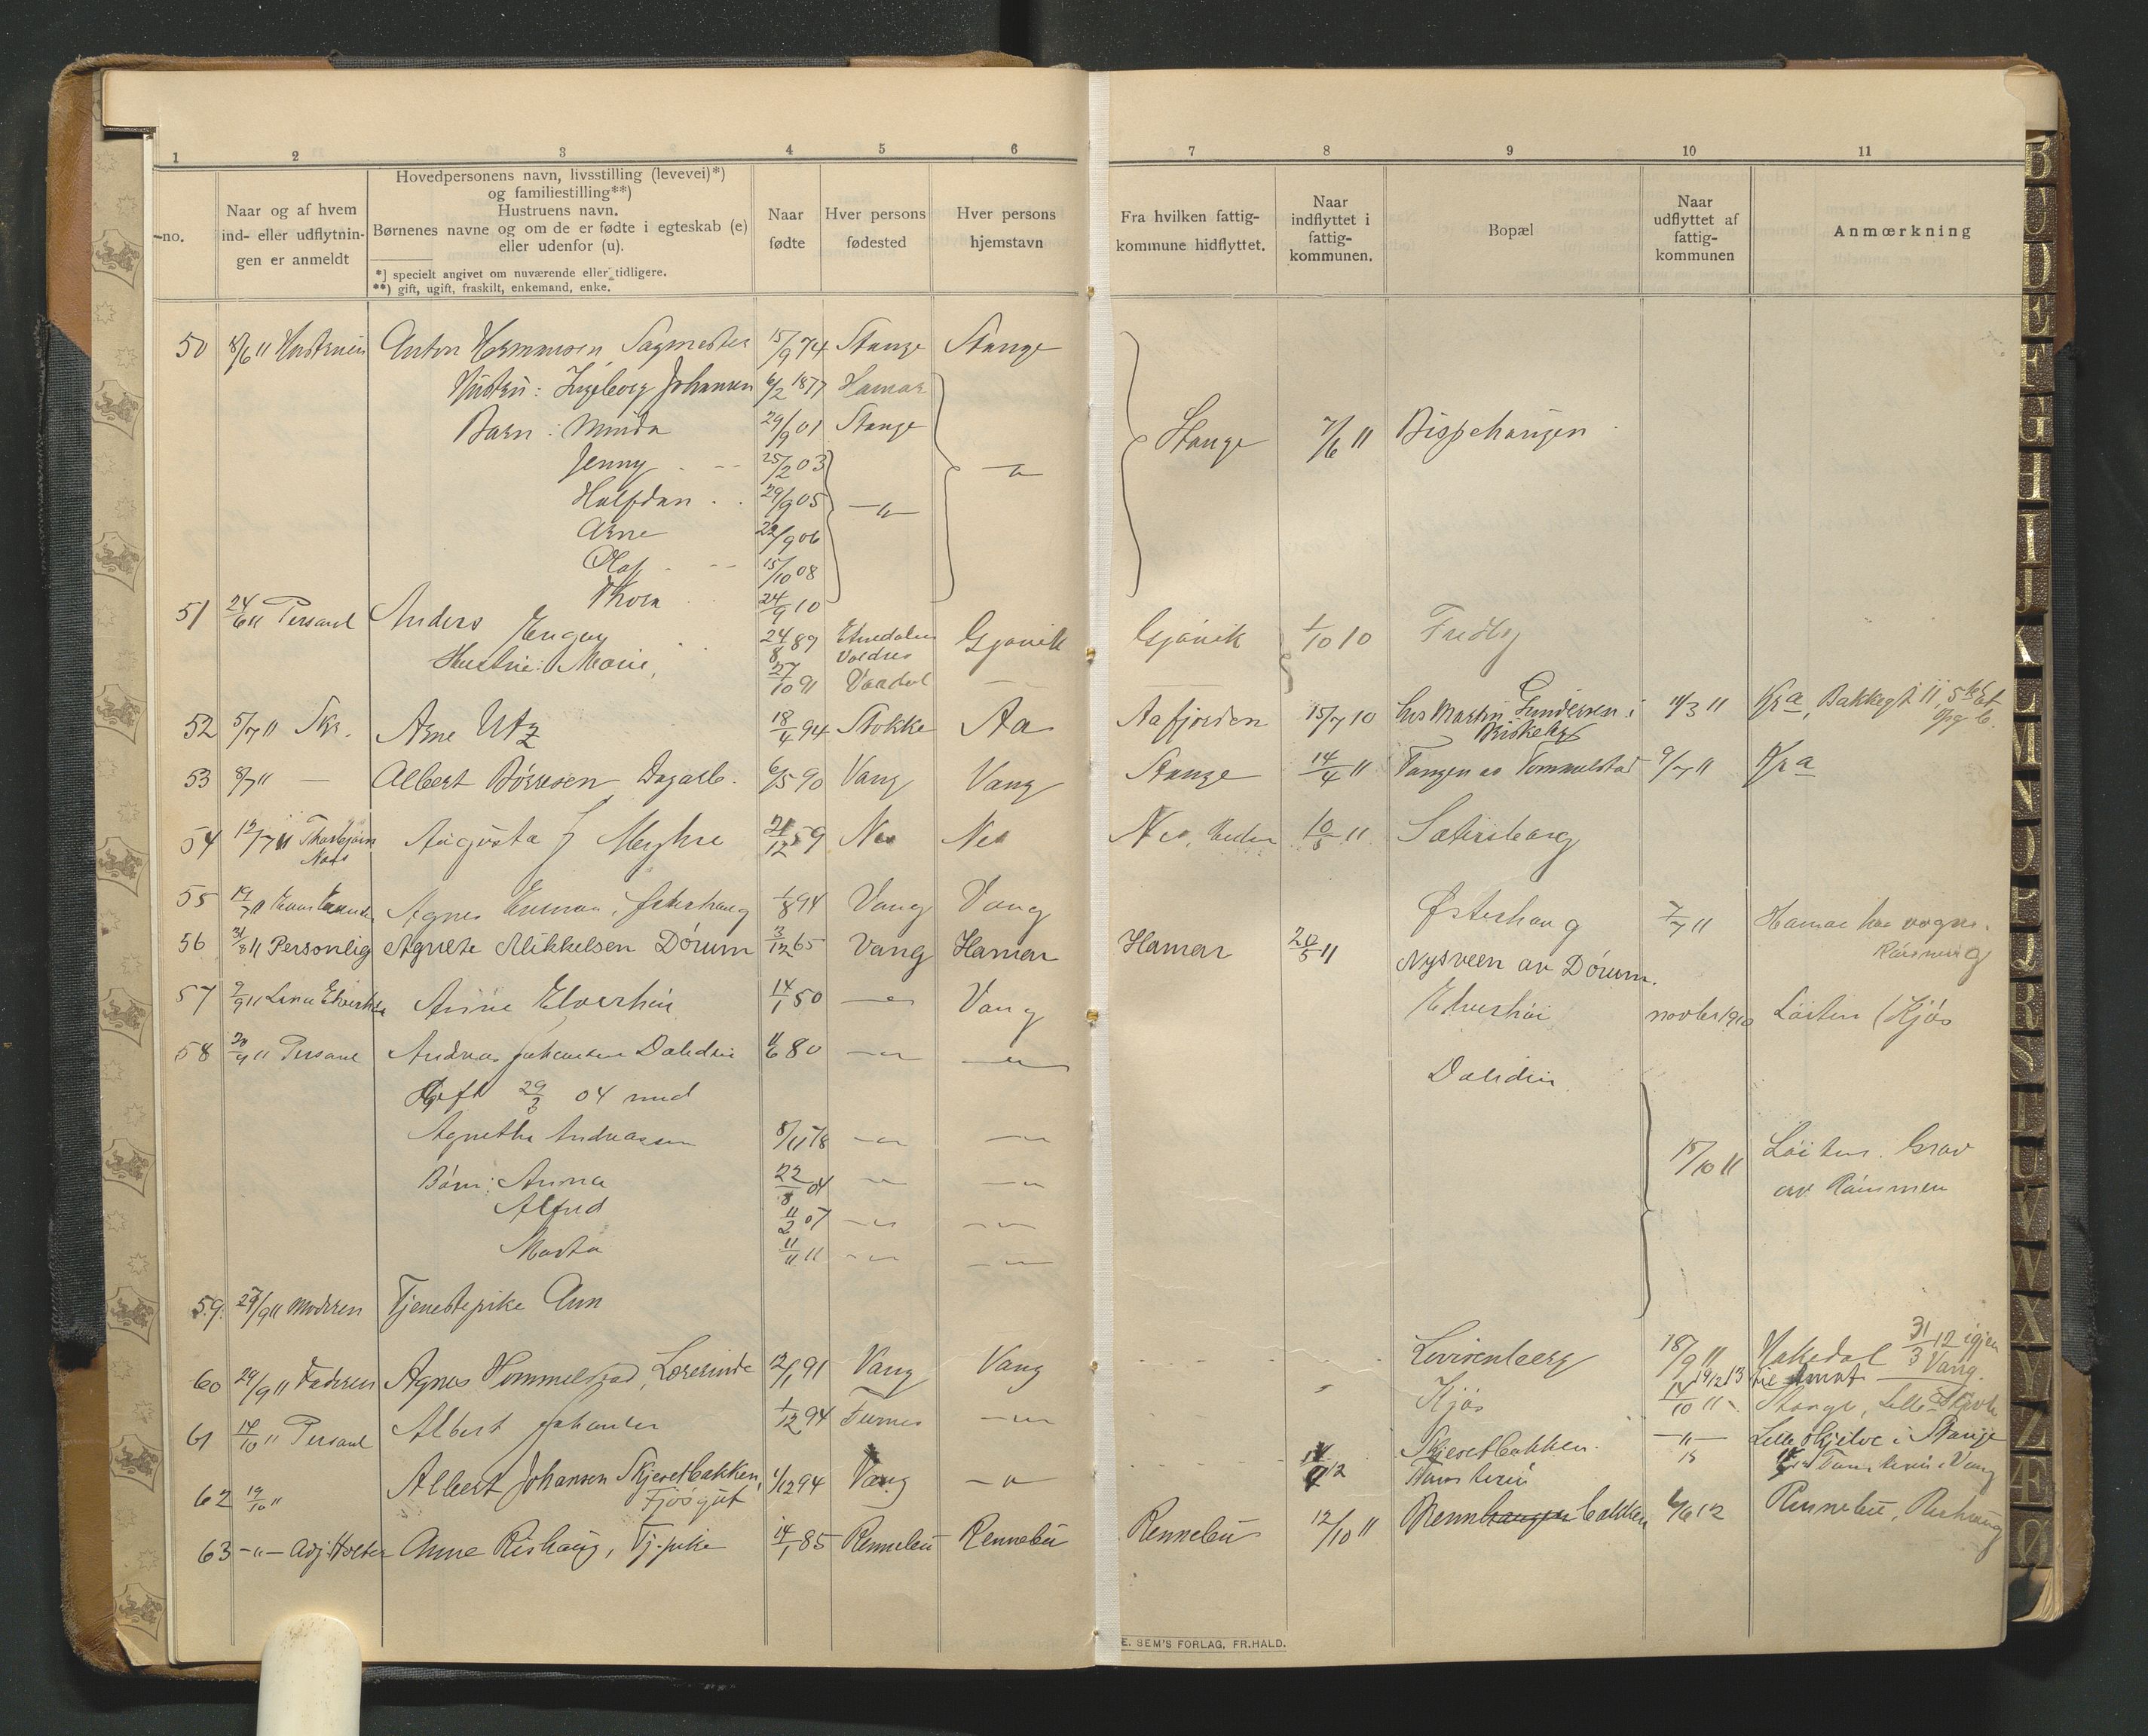 1 2 3 4 5 6 7 8 9 10 11
-no.
Naar og af hvem
ind- eller udflytnin-
gen er anmeldt
Hovedpersonens navn, livsstilling (levevei)*)
og familiestilling**)
Hustruens navn.
Børnenes navne og om de er fødte i egteskab (e)
eller udenfor (u).
*) specielt angivet om nuværende eller tidligere.
**) gift, ugift, fraskilt, enkemand, enke.
Naar
fødte
Hver persons
fødested
Hver persons
hjemstavn
Fra hvilken fattig-
kommune hidflyttet.
Naar
indflyttet i
fattig-
kommunen.
Bopæl
Naar
udflyttet af
fattig-
kommunen
Anmœrkning
50 8/6 11 Hustruen Anton Hermansen Sagmester 15/9 74 Stange Stange
Hustru: Ingeborg Johansen 6/2 1877 Hamar
Barn: Minda 29/9 01 Stange Stange 7/6 11 Bispehaugen
Jenny 25/2 03 —"—
Halfdan 29/9 05 —"—
Arne 22/9 06
Olaf 15/10 08
Thora 24/9 10
51 24/6 11 Personl Anders
Engen 24/8 89 Etnedalen Gjøvik Gjøvik 1/10 10 Fredly
Valdres
Hustru: Marie, 27/10 91 Vardal —
52 5/7 11 Skr. Arne Utz 18/4 94 Stokke Aa Aafjorden 15/7 10 hos Martin Gundersen i 14/3 11 Kra, Bakkegt 11, 5te Et
Briskeby opg b.
53 8/7 11 — Albert Børresen Dagarb. 6/5 90 Vang Vang Stange 14/4 11 Tangen av Tommelstad 9/7 11 Kra
54 12/7 11 Thorbjørn Augusta J Myhre 21/12 59 Nes Nes Nes, Heden 10/5 11 Sætersberg
Nes
55 19/7 11 Agnes Østerhaug 1/8 94 Vang Vang Østerhaug 7/7 11 Hamar
56 31/8 11 Personlig Agnete Mikkelsen Dørum 3/12 65 Vang Hamar Hamar 20/5 11 Nysveen av Dørum.
57 2/9 11 Anne Elvershøi 14/1 50 —"— Vang Elvershøi novbr 1910 Løiten (Kjøs
58 20/9 11 Personl Andreas Johansen Dalidin 11/6 80 —"— —"— Dalidin
Gift 29/3 04 med
Agnethe Andreassen 8/11 78 —"— —"—
Børn: Anna 22/8 04 —"— —"— 15/10 11 Løiten. Grav
Alfred 11/2 07 —"— —"—
Marta 11/11 11 —"— —"—
59. 27/9 11 Moderen Tjenestepike Ann
60 29/9 11 Faderen Agnes Hommelstad, Lærerinde 12/1 91 Vang Vang Lovisenberg 18/9 11 Hakedal 31/3 12 igjen
Vang.
61 14/10 11 Personl Albert Johansen 1/12 94 Furnes —"— Kjøs 14/10 11 Stange, Lille Skjelve
62 19/10 11 Albert Johansen Skjeretbakken, 1/12 94 Vang —"— Skjeretbakken. —"— Lille Skjelve i Stange
Fjøsgut
63 —"— Adj. Holter Anne Rishaug, Tj.pike 14/1 85 Rennebu Rennebu Rennebu 12/10 11 bakken 4/6 12 Rennebu, Rishaug
E. SEM'S FORLAG, FR.HALD.
B C D E F G H I J K L M N O P Q R S T U V W X Y Z Æ Ø